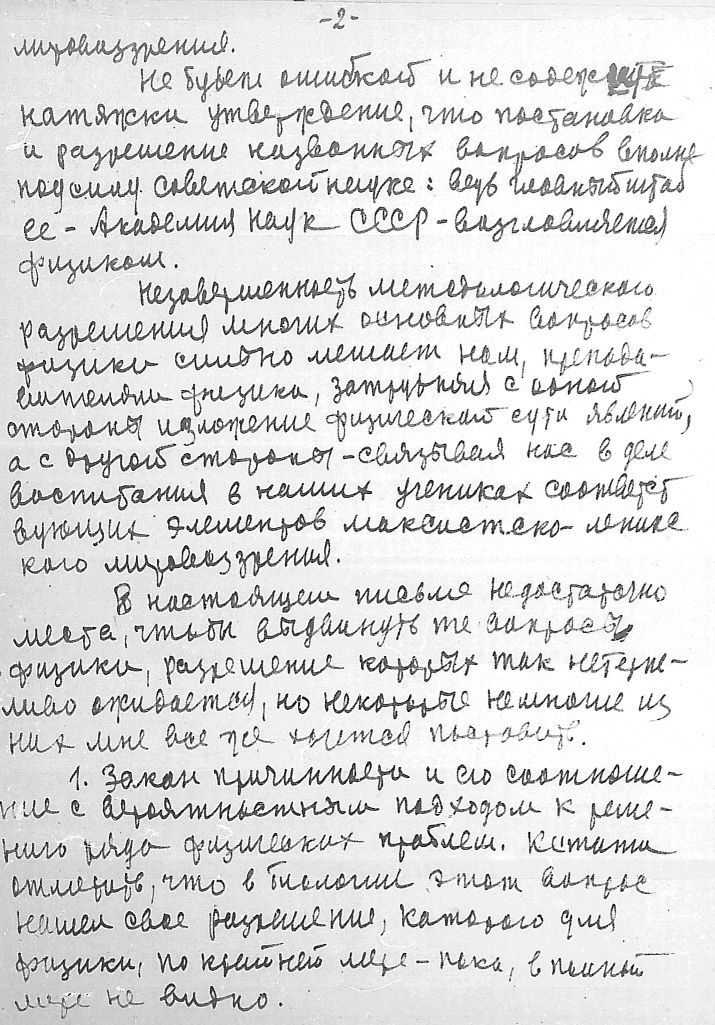 -2-
мировоззрения.
Не будет ошибкой и не содержит
натяжки утверждение, что постановка
и разрешение названных вопросов вполне
подсилу советской науке: ведь главный штаб
ее - Академия Наук СССР - возглавляется
физиком.
Незавершенность методологического
разрешения многих основных вопросов
физики сильно мешает нам, препода-
вателям физики, затрудняя с одной
стороны изложение физической сути явлений,
а с другой стороны - связывая нас в деле
воспитания в наших учениках соответст
вующих элементов максистско-ленинс
кого мировоззрения.
В настоящем письме недостаточно
места, чтобы выдвинуть те вопросы
физики, разрешение которых так нетерпе-
ливо ожидается, но некоторые немногие из
них мне все же хочется поставить.
1. Закон причинности и его соотноше-
ние с вероятностным подходом к реше-
нию ряда физических проблем. Кстати
отметить, что в биологии этот вопрос
нашел свое разрешение, которого для
физики, по крайней мере - пока, в полной
мере не видно.